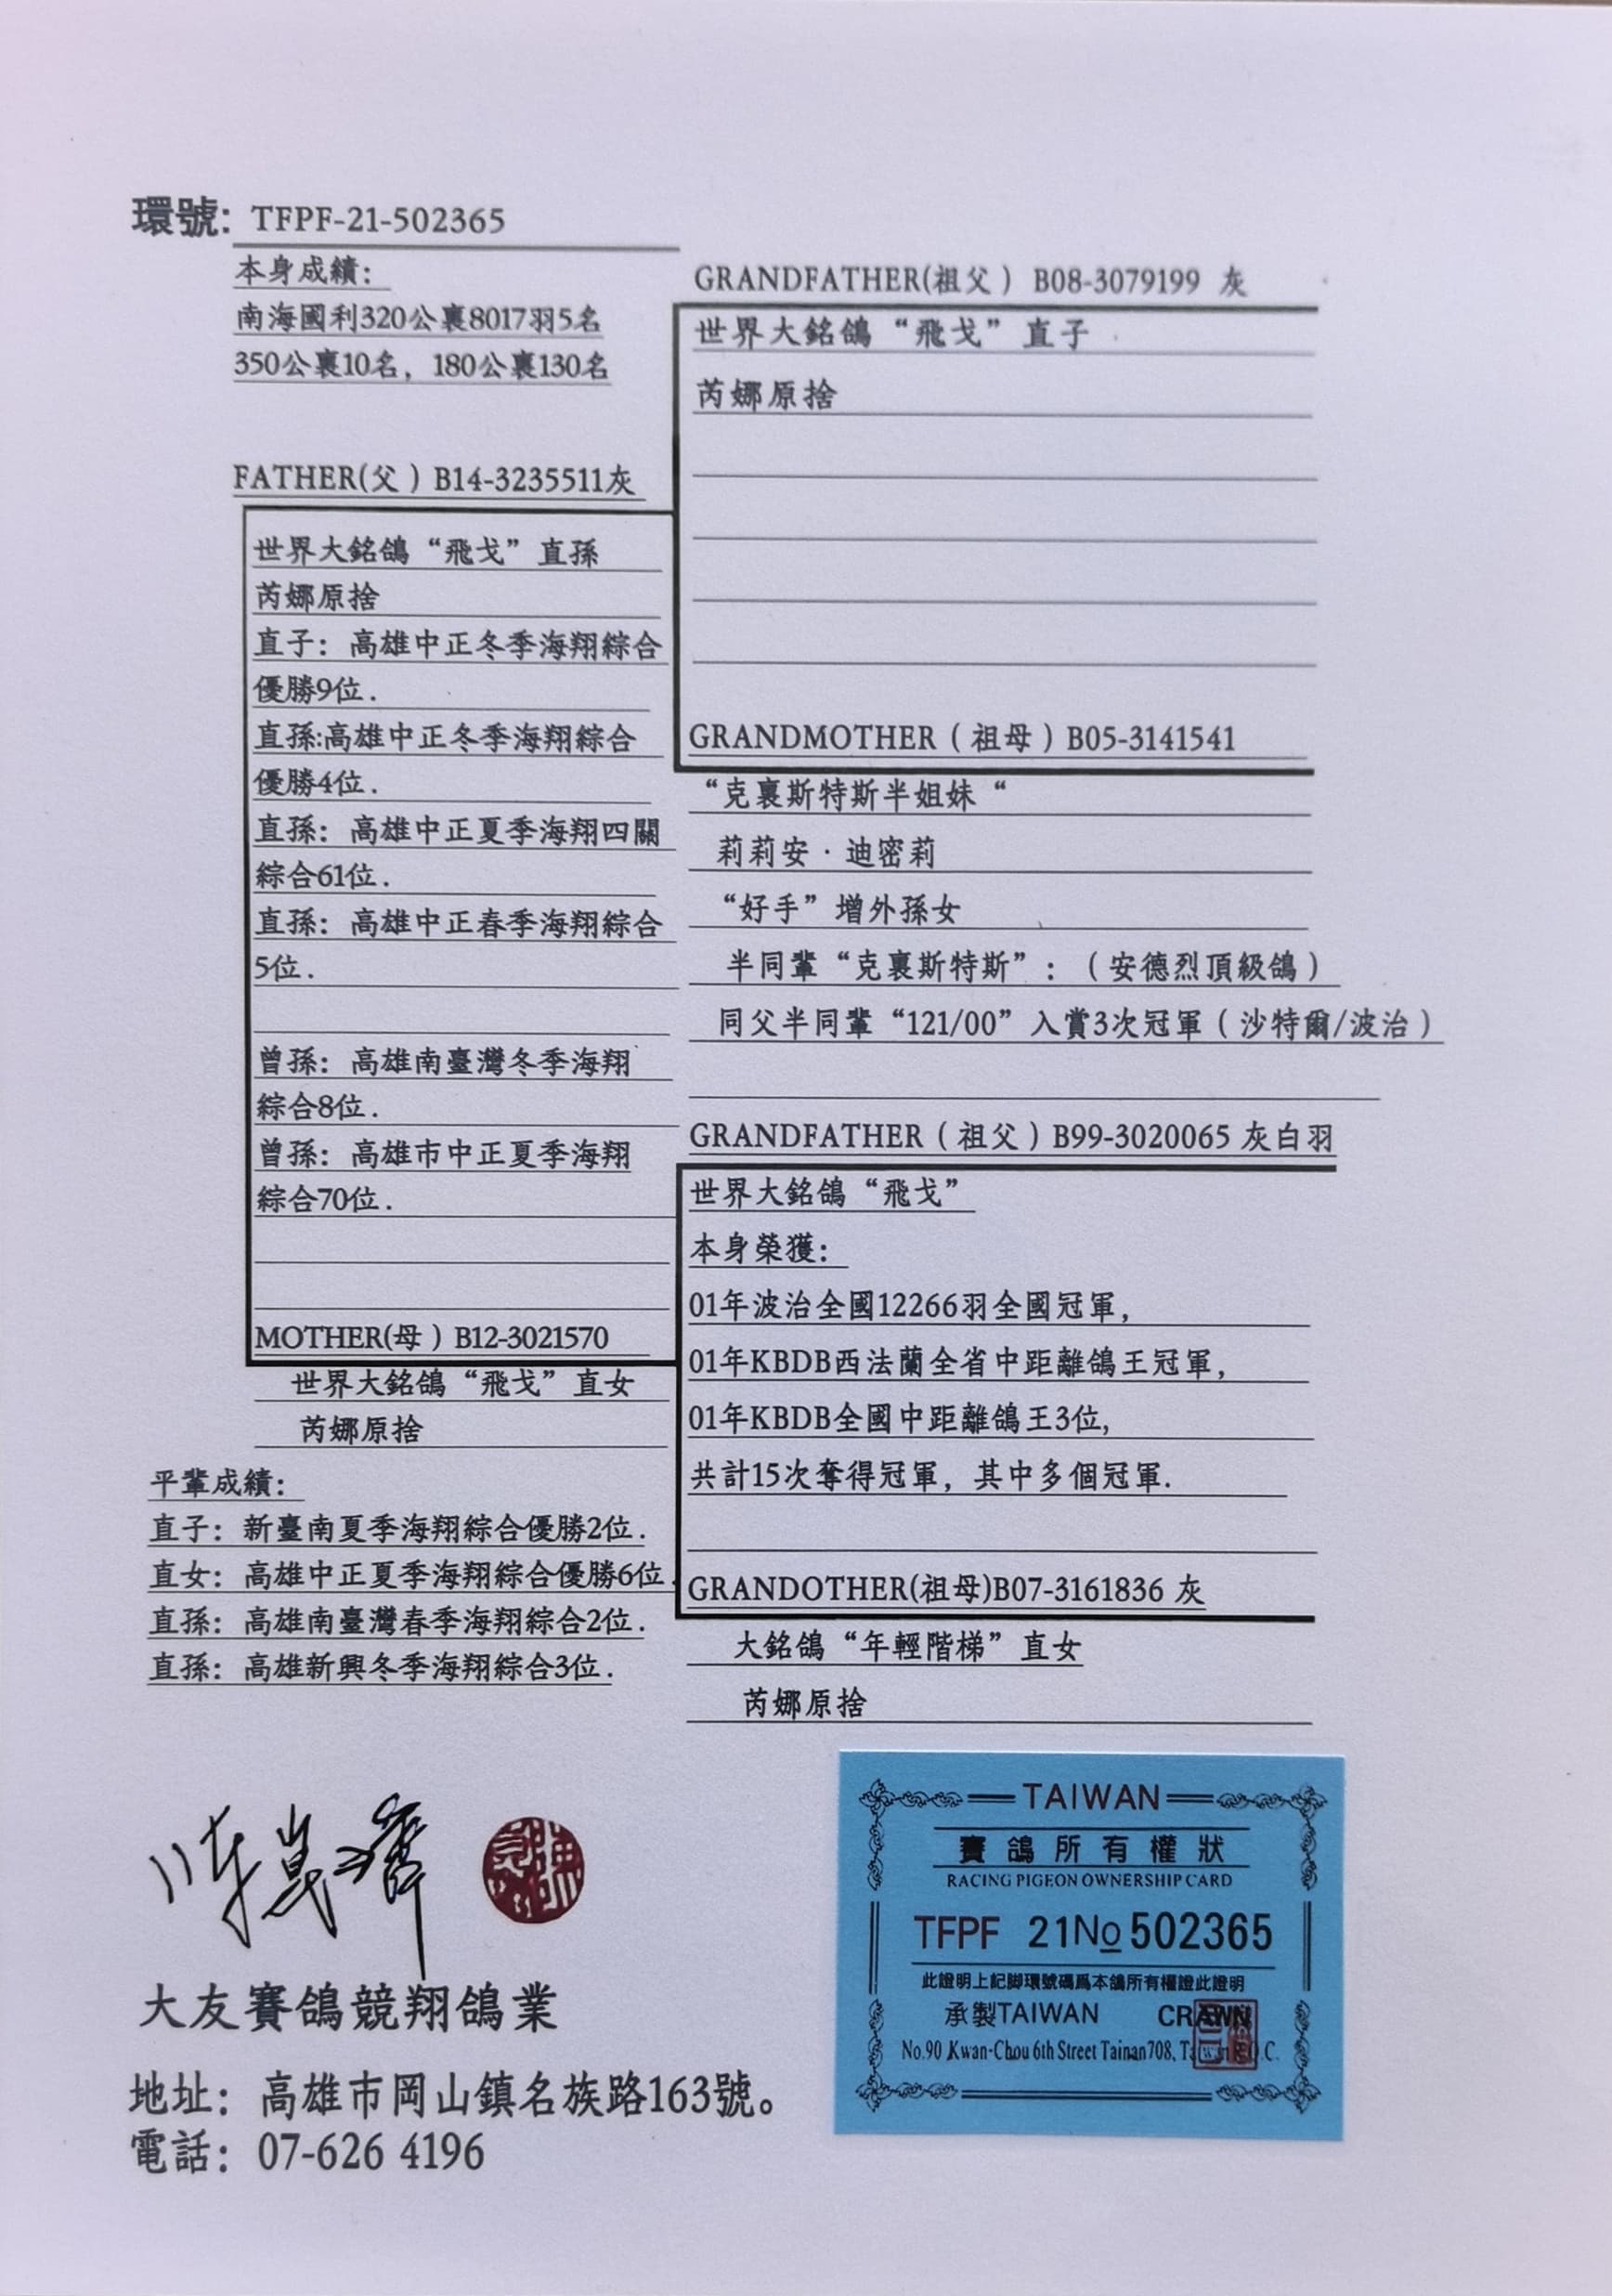 環號: TFPF-21-502365
本身成績:
南海國利320公裏8017羽5名
350公裏10名, 180公裏130名
FATHER(父) B14-3235511灰
世界大銘鴿“飛戈”直孫
芮娜原捨
直子: 高雄中正冬季海翔綜合
優勝9位.
直孫:高雄中正冬季海翔綜合
優勝4位.
直孫: 高雄中正夏季海翔四關
綜合61位.
直孫: 高雄中正春季海翔綜合
5位.
曾孫: 高雄南臺灣冬季海翔
綜合8位.
曾孫: 高雄市中正夏季海翔
綜合70位.
MOTHER(母) B12-3021570
世界大銘鴿“飛戈”直女
芮娜原捨
平輩成績:
直子: 新臺南夏季海翔綜合優勝2位.
直女: 高雄中正夏季海翔綜合優勝6位.
直孫: 高雄南臺灣春季海翔綜合2位.
直孫: 高雄新興冬季海翔綜合3位.
GRANDFATHER(祖父) B08-3079199 灰
世界大銘鴿“飛戈”直子
芮娜原捨
GRANDMOTHER(祖母)B05-3141541
“克裏斯特斯半姐妹“
莉莉安·迪密莉
“好手”增外孫女
半同輩“克裏斯特斯”:(安德烈頂級鴿)
同父半同輩“121/00”入賞3次冠軍(沙特爾/波治)
GRANDFATHER(祖父)B99-3020065 灰白羽
世界大銘鴿“飛戈”
本身榮獲:
01年波治全國12266羽全國冠軍,
01年KBDB西法蘭全省中距離鴿王冠軍,
01年KBDB全國中距離鴿王3位,
共計15次奪得冠軍, 其中多個冠軍.
GRANDOTHER(祖母)B07-3161836 灰
大銘鴿“年輕階梯”直女
芮娜原捨
大友賽鴿競翔鴿業
地址: 高雄市岡山鎮名族路163號。
電話: 07-626 4196
TAIWAN
賽鴿所有權狀
RACING PIGEON OWNERSHIP CARD
TFPF 21No 502365
此證明上記脚環號碼爲本鴿所有權證此證明
承製TAIWAN CRAWN
No.90 Kwan-Chou 6th Street Tainan708, Taiwan R.O.C.